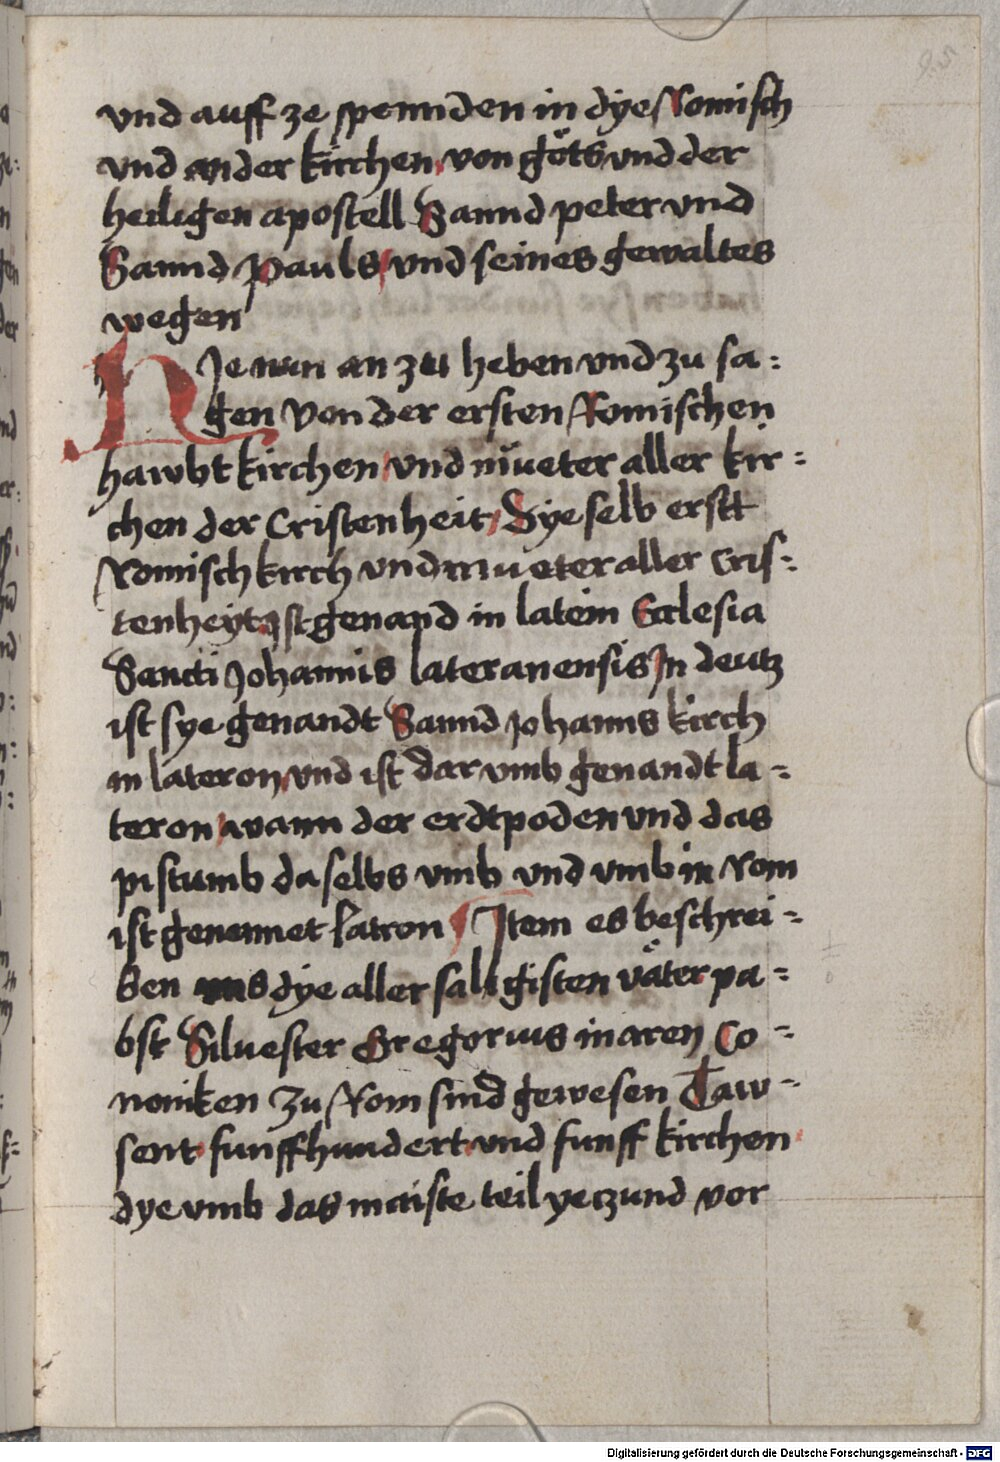 vnd auff ze spennden in dye Romisch
vnd ander kirchen von göts vnd der
heiligen apostell Sannd peter vnd
Sannd Pauls vnd seines gewaltes
wegen
HJe nun an zu heben vnd zu sa=
gen von der ersten Romischen
hawbt kirchen vnd müeter aller kir=
chen der Cristenheit Dye selb erstt
Romisch kirch vnd mueter aller Cris=
tenheyt Jst genand in latein Ecclesia
Sancti Johannis lateranensis Jn deutz
ist sye genandt Sannd Johanns kirch
in lateron vnd ist dar vmb genandt la=
teron wann der erdtpoden vnd das
pistumb da selbs vmb vnd vmb in Rom
ist genennet latron Jtem es beschrei=
ben vns dye aller saligisten väter pa=
bst Siluester Gregorius in aren Co=
noniken zu Rom sind gewesen Taw=
sent funffhundert vnd funff kirchen
dye vmb das maiste teil yeczund vor
Digitalisierung gefördert durch die Deutsche Forschungsgemeinschaft - DFG